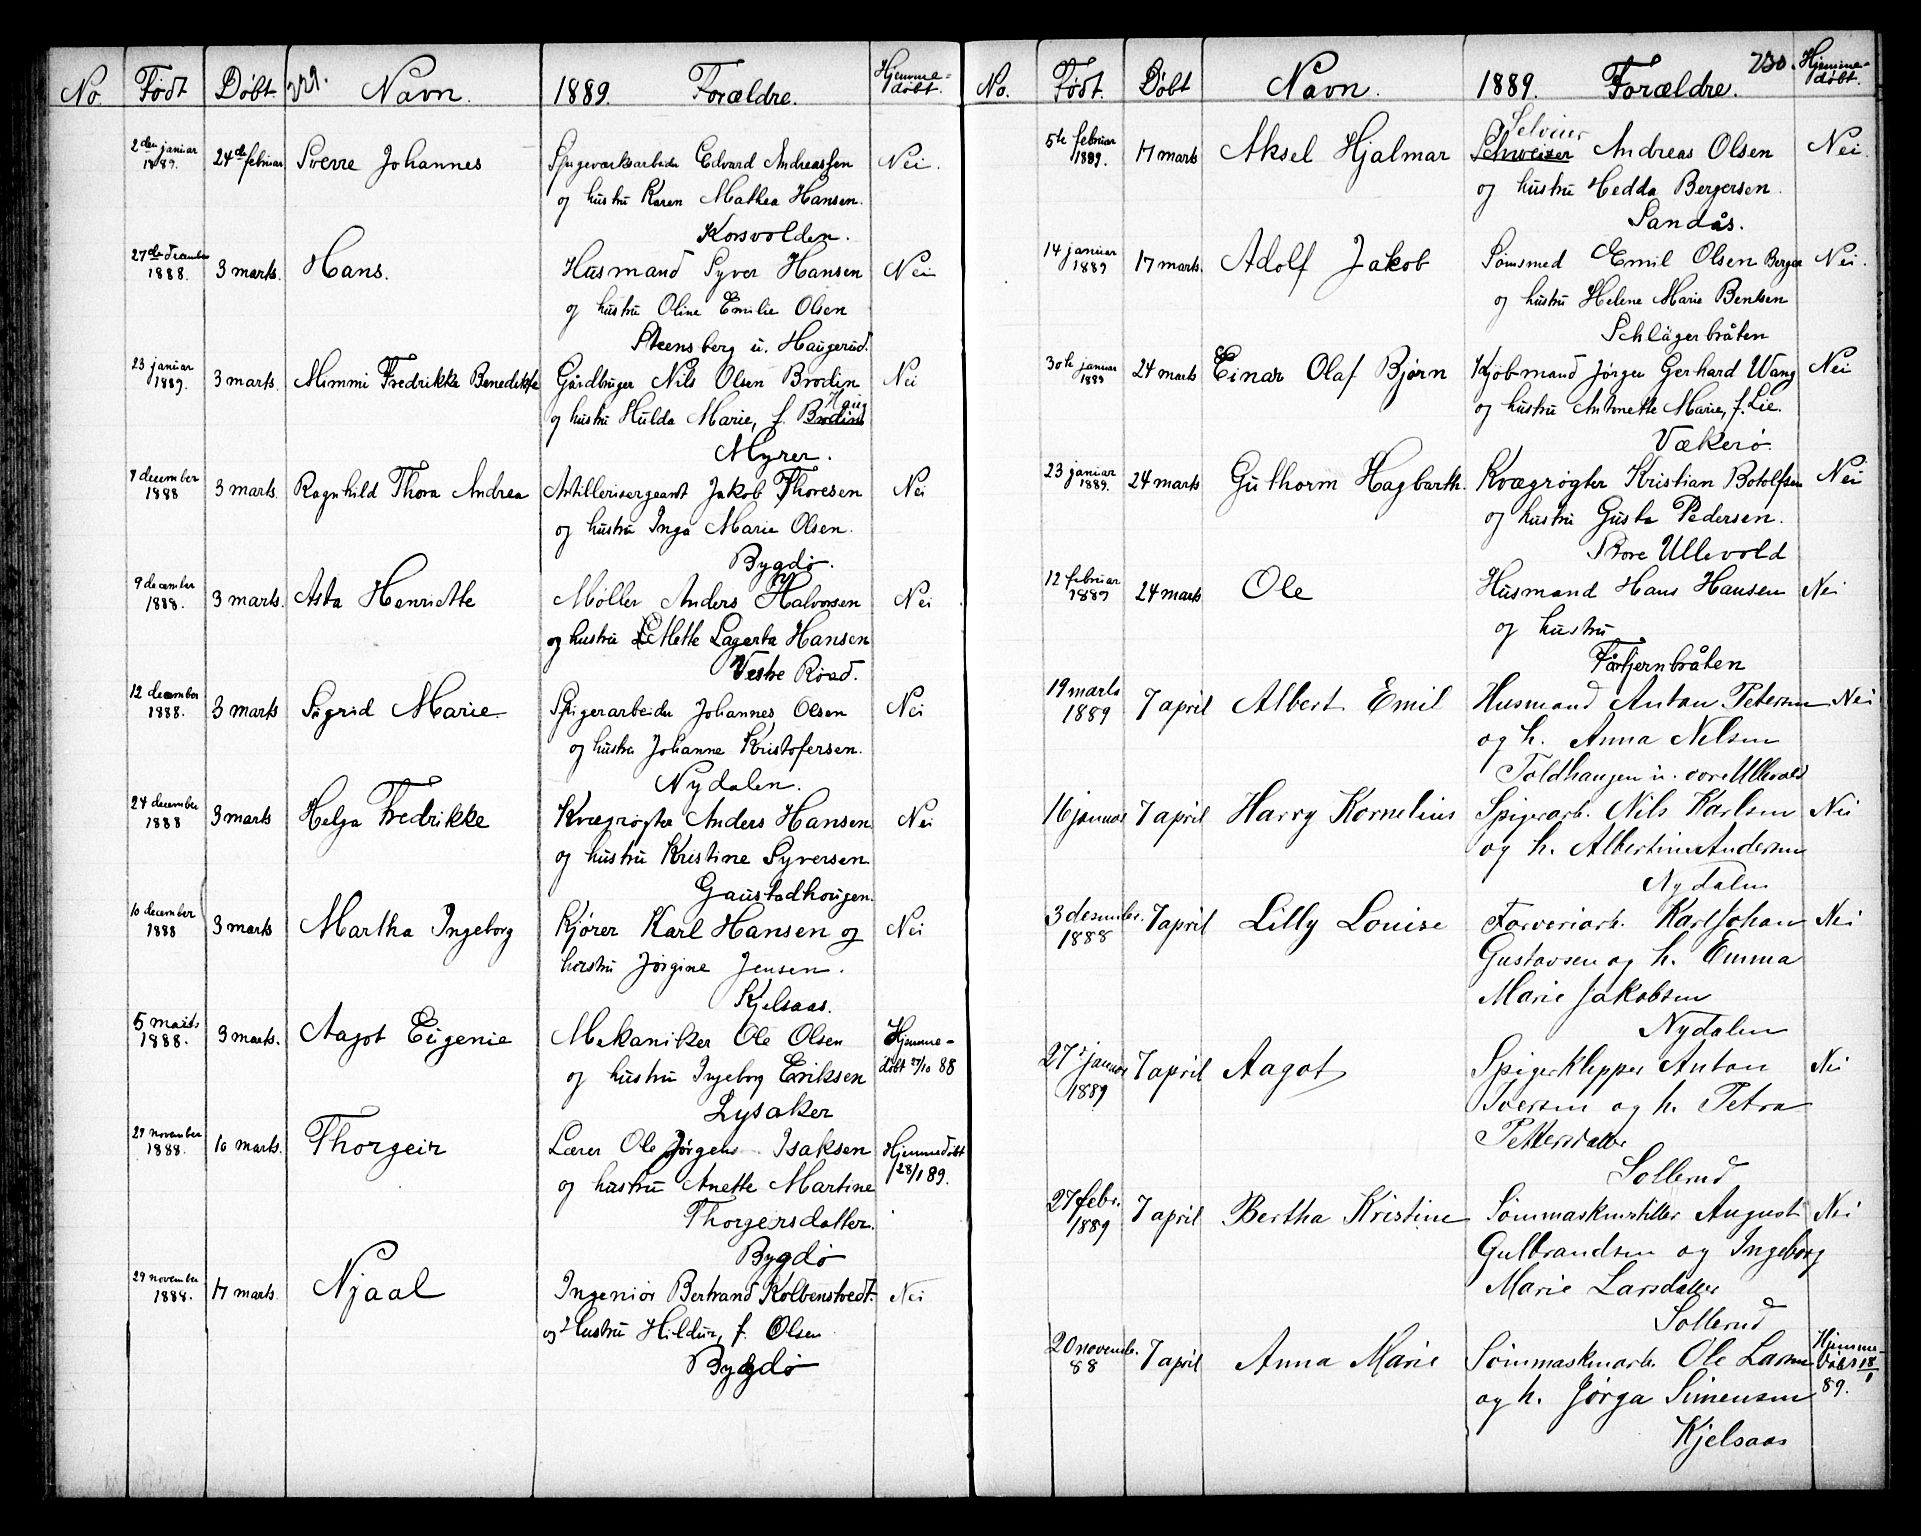 No. Født Døbt. 229. Navn. 1889. Forældre. Hjemme-døbt.
2den januar 1889. 24de februar Sverre Johannes Spigerværksarbeider Edvard Andreassen Nei.
og hustru Karen Mathea Hansen.
Korsvolden.
27de december 1888. 3 marts. Hans. Husmand Syver Hansen Nei
og hustru Oline Emilie Olsen
Steensberg u. Haugerud.
23 januar 1889. 3 marts. Mimmi Fredrikke Benedikte Gårdbruger Nils Olsen Brodin Nei
Haug
og hustru Hulda Marie, f. Brodin
Myrer.
7 december 1888 3 marts. Ragnhild Thora Andrea Artillerisergeant Jakob Thoresen Nei
og hustru Inga Marie Olsen.
Bygdø.
9 december 1888. 3 marts. Asta Henriette Møller Anders Halvorsen Nei
og hustru Mette Lagerta Hansen
Vestre Road.
12 december 1888. 3 marts Sigrid Marie. Spigerarbeider Johannes Olsen Nei
og hustru Johanne Kristofersen.
Nydalen.
24 december 1888 3 marts Helga Fredrikke Kvægrøgter Anders Hansen Nei
og hustru Kristine Syversen
Gaustadhougen.
10 december 1888 3 marts Martha Ingeborg Kjører Karl Hansen og Nei
hustru Jørgine Jensen.
Kjelsaas.
5 marts 1888. 3 marts. Aagot Eugenie Mekaniker Ole Olsen Hjemme-
og hustru Ingeborg Eriksen døbt 27/10 88
Lysaker
29 november 1888. 10 marts. Thorgeir Lærer Ole Jørgen Isaksen Hjemmedøbt
og hustru Anette Martine 28/1 89.
Thorgersdatter.
Bygdø
29 november 1888. 17 marts. Njaal Ingeniør Bertrand Kolbenstvedt. Nei
og hustru Hildur, f. Olsen
Bygdø
No. Født. Døbt Navn. 1889. Forældre. 230 Hjemme-døbt.
5te februar 1889. 17 marts Aksel Hjalmar Schweizer Andreas Olsen Nei.
og hustru Hedda Bergersen.
Sandås.
14 januar 1889 17 marts. Adolf Jakob Sømsmed Emil Olsen Berger Nei.
og hustru Helene Marie Bentsen
Schlägerbråten
30te januar 1889 24 marts Einar Olaf Bjørn Kjøbmand Jørgen Gerhard Wang Nei
og hustru Antonette Marie, f. Lie.
Vækerø.
23 januar 1889. 24 marts Guthorm Hagbarth. Kvægrøgter Kristian Botolfsen Nei
og hustru Gusta Pedersen.
Store Ullevold
12 februar 1889 24 marts Ole Husmand Hans Hansen Nei
og hustru
Tårtjernbråten
19 marts 1889 7 april Albert Emil Husmand Anton Petersen Nei
og h. Anna Nelsen
Toldhaugen u. store Ullevold
16 januar 7 april Harry Kornelius Spigerarb. Nils Karlsen Nei
og h. Albertine Andersen
Nydalen
3 desember. 1888 7 april Lilly Louise Farveriarb. Karl Johan Nei
Gustavsen og h. Emma
Marie Jakobsen
Nydalen
27 januar 1889 7 april Aagot Spigerklipper Anton Nei
Iversen og h. Petra
Pettersdatter
Sollerud
27 febr. 1889 7 april Bertha Kristine Sømmaskinstiller August Nei
Gulbrandsen og Ingeborg
Marie Larsdatter
Sollerud
20 novemb. 88 7 april Anna Marie Sømmaskinarb. Ole Larsen Hjemme-
og h. Jørga Simensen døbt 18/1 89.
Kjelsaas